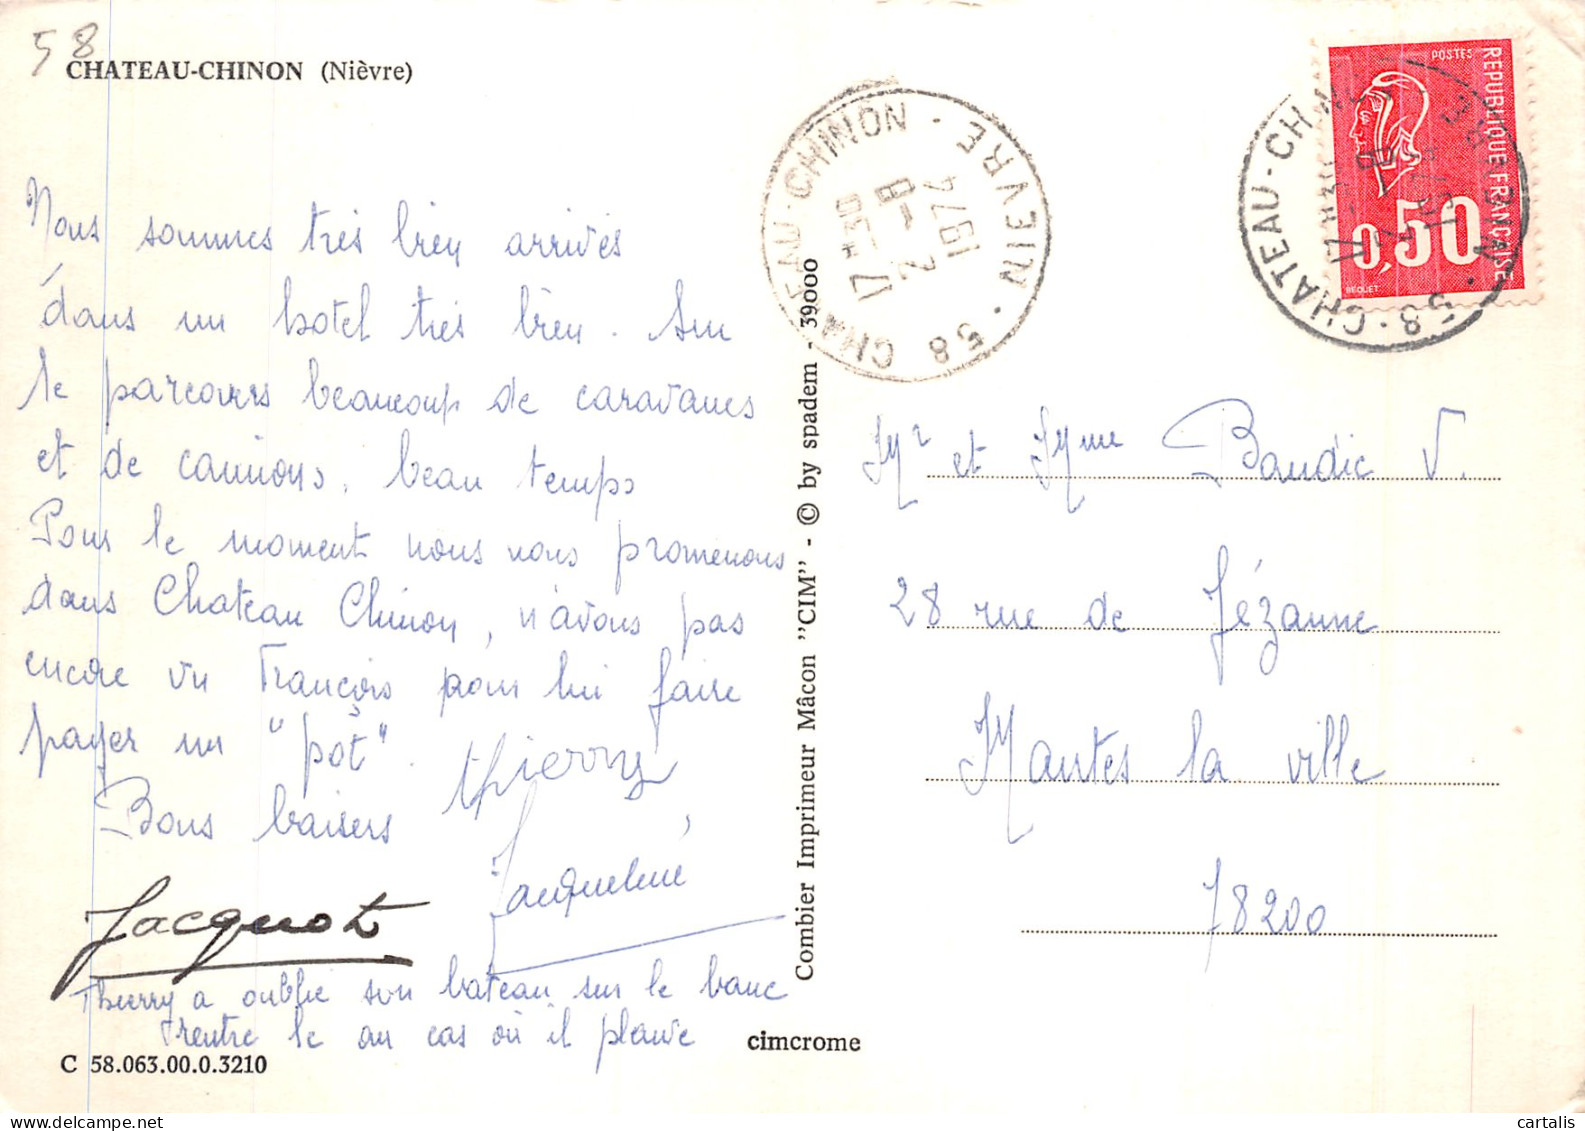 58
CHATEAU-CHINON (Nièvre)
Nous sommes très bien arrivés
dans un hotel très bien. Sur
le parcours beaucoup de caravanes
et de camions, beau temps
Pour le moment nous nous promenons
dans Chateau Chinon, n'avons pas
encore vu François pour lui faire
payer un "pot".
Bons baisers Thierry
Jacqueline
Jacquot
Thierry a oublié son bateau sur le banc
rentre le au cas où il pleuve
C 58.063.00.0.3210
cimcrome
Combier Imprimeur Mâcon "CIM" - © by spadem - 39000
58 CHATEAU-CHINON - NIEVRE
17 H 30
2 - 8
1974
POSTES
REPUBLIQUE FRANÇAISE
0,50
BEQUET
58 - CHATEAU-CHINON
17 H 30
2 - 8
1974
Mr et Mme Baudic V.
28 rue de Sézanne
Mantes la ville
78200
cartalis